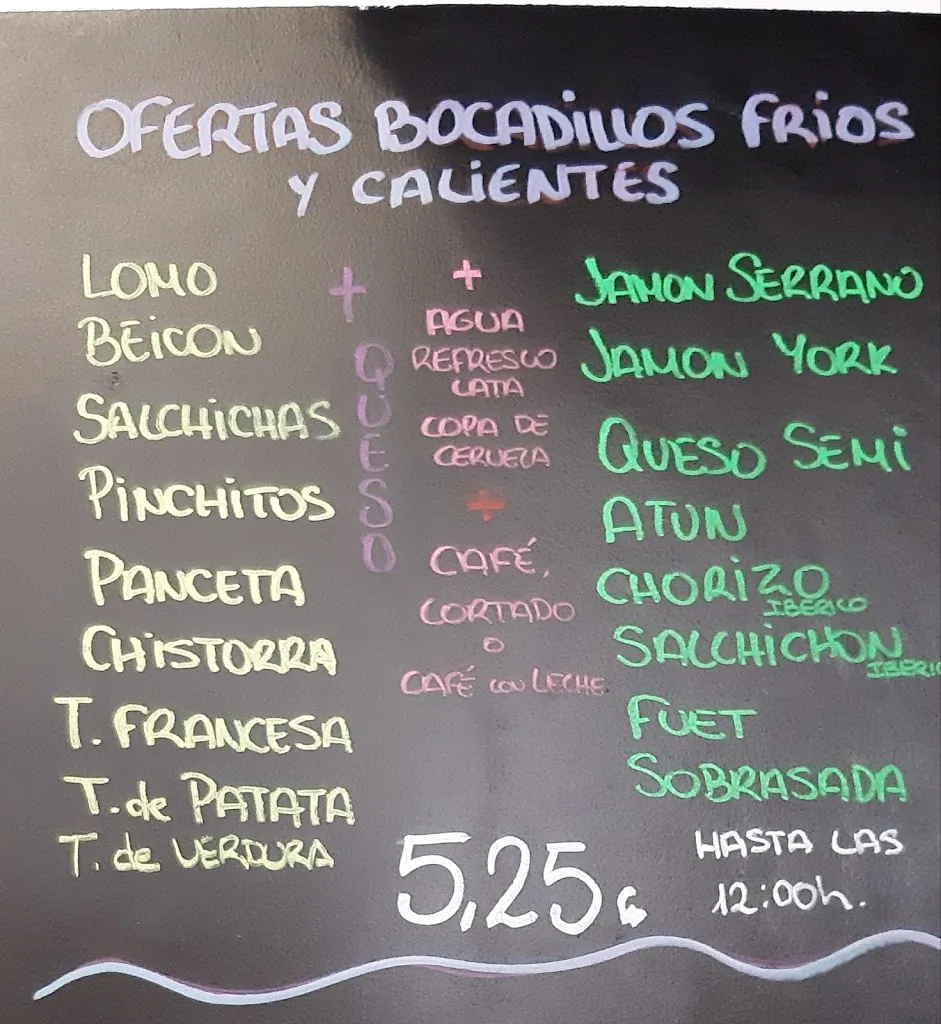 OFERTAS BOCADILLOS FRIOS
Y CALIENTES
LOMO
BEICON
SALCHICHAS
PINCHITOS
PANCETA
CHISTORRA
T. FRANCESA
T. de PATATA
T. de VERDURA
+
QUESO
+
AGUA
REFRESCO
LATA
COPA DE
CERVEZA
+
CAFÉ,
CORTADO
O
CAFÉ CON LECHE
JAMON SERRANO
JAMON YORK
QUESO SEMI
ATUN
CHORIZO
IBERICO
SALCHICHON
IBERICO
FUET
SOBRASADA
5,25€
HASTA LAS
12:00h.